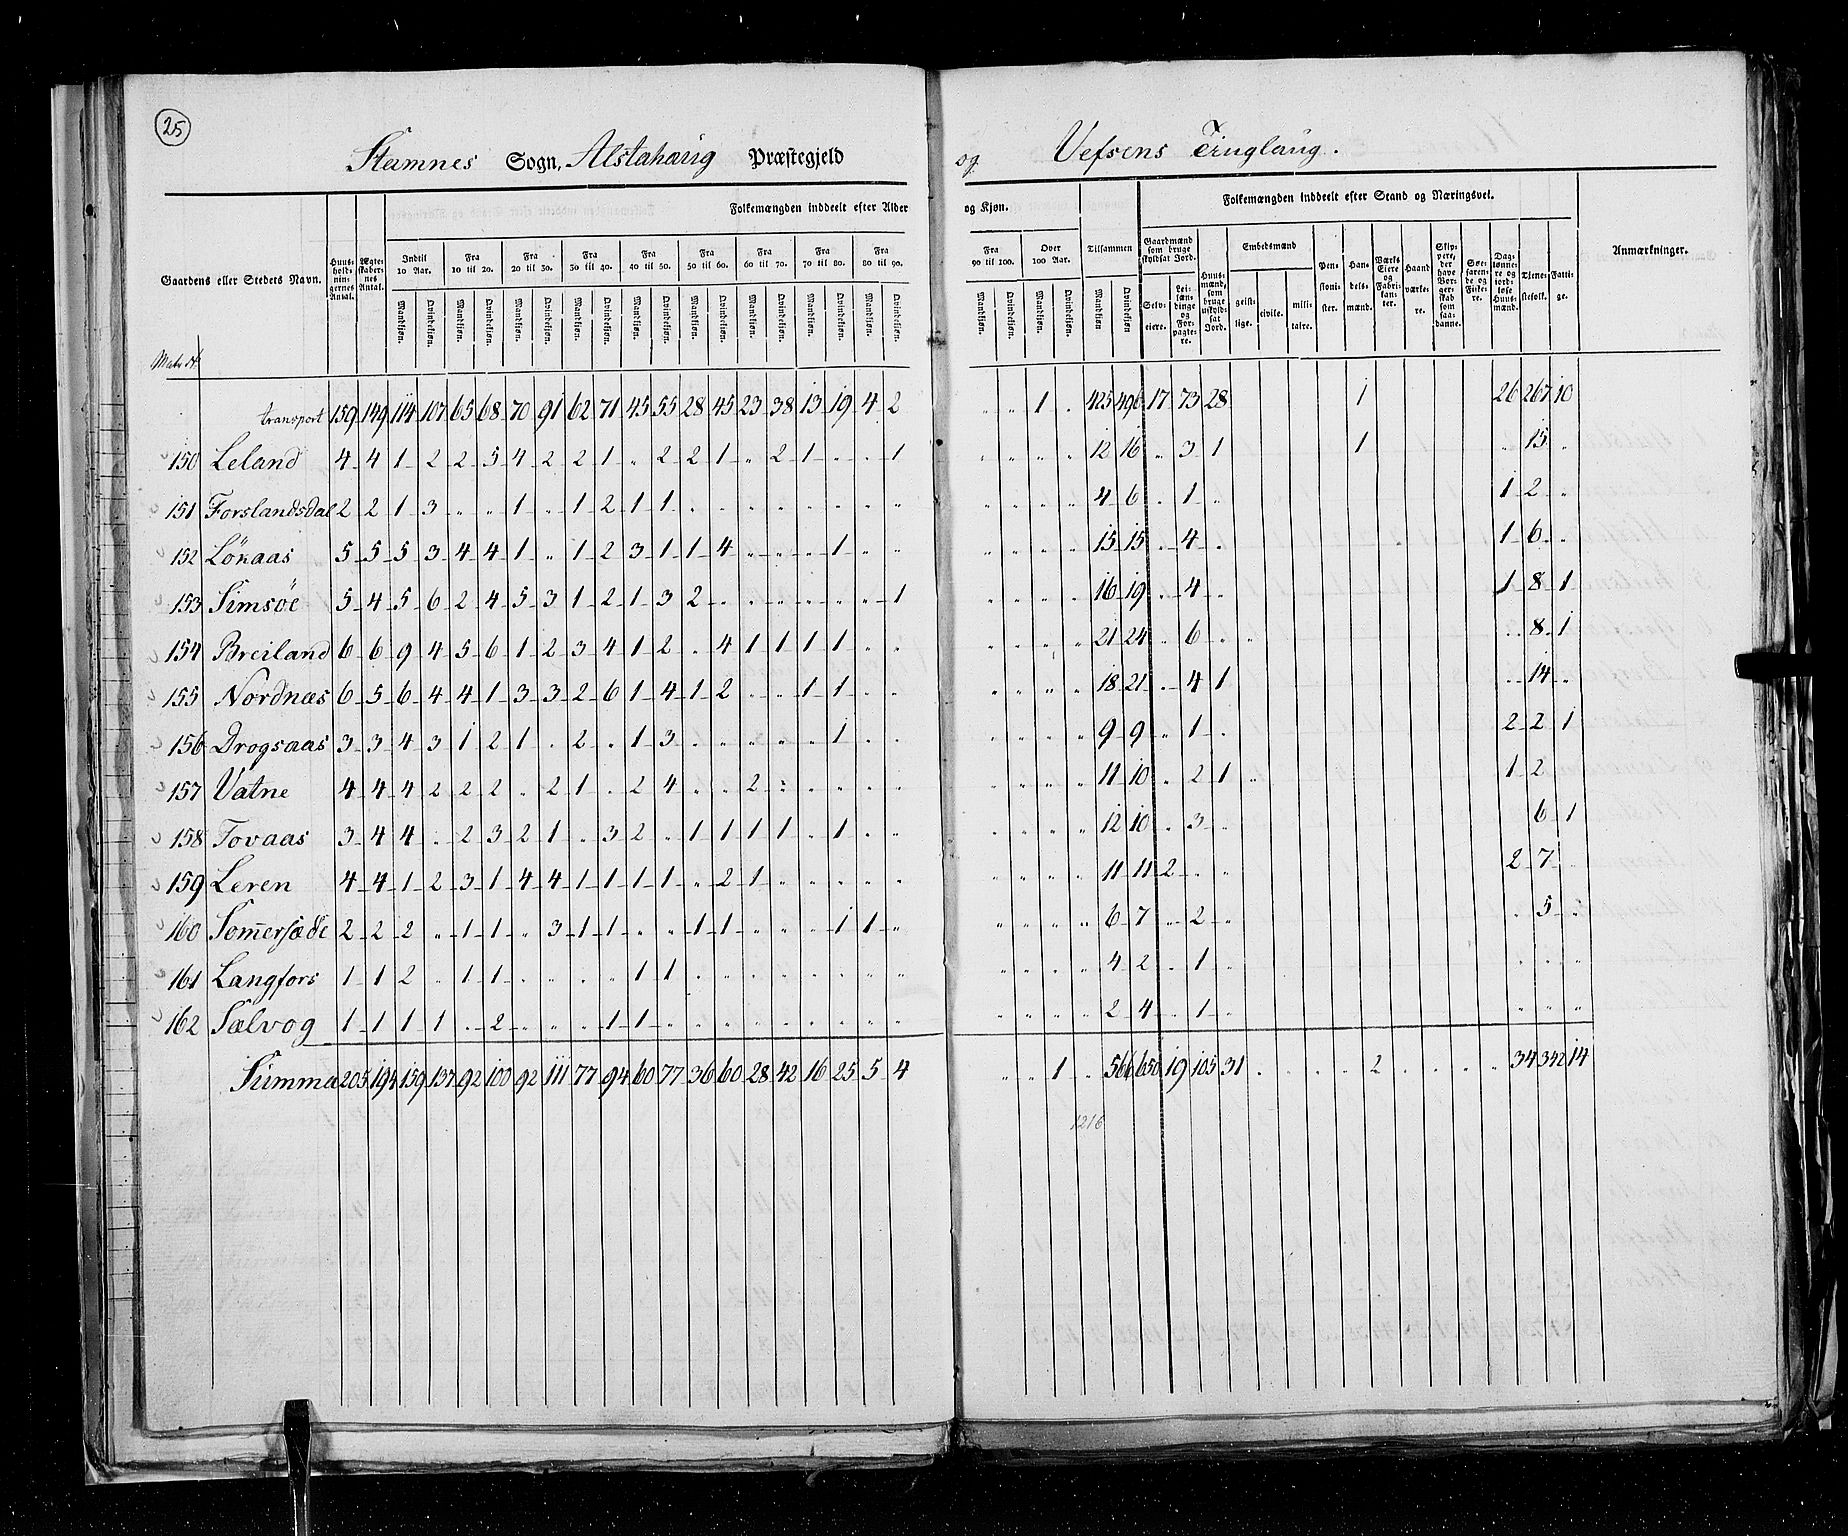 25
Stamnes Sogn, Alstahaug Præstegjeld og Vefsens Tinglaug.
Gaardens eller Stedets Navn. | Huusholdningernes Antal. | Ægteskabernes Antal. | Folkemængden inddeelt efter Alder og Kjøn. | Tilsammen | Folkemængden inddeelt efter Stand og Næringsvei. | Anmærkninger.
Indtil 10 Aar. | Fra 10 til 20. | Fra 20 til 30. | Fra 30 til 40. | Fra 40 til 50. | Fra 50 til 60. | Fra 60 til 70. | Fra 70 til 80. | Fra 80 til 90. | Fra 90 til 100. | Over 100 Aar.
Mandkjøn. Qvindekjøn.
Gaardmænd som bruge skyldsat Jord. | Selveiere. | Leilændinge og Forpagtere. | Huusmænd, som bruge uskyldsat Jord. | Embedsmænd | geistlige. | civile. | militaire. | Pensionister. | Handelsmænd. | Værks Eiere og Fabrikanter. | Haandværkere. | Skippere, der have Borgerskab som saadanne. | Søefarende og Fiskere. | Daglønnere og jordløse Huusmænd. | Tjenestefolk. | Fattige.
Matr №
transport 159 149 114 107 65 68 70 91 62 71 45 55 28 45 23 38 13 19 4 2 " " 1 " 425 496 17 73 28 1 26 267 10
150 Leland 4 4 1 2 2 5 4 2 2 1 " 2 2 1 " 2 1 " " 1 " " " " 12 16 " 3 1 1 " 15 "
151 Forslandsdal 2 2 1 3 " " 1 " 1 2 1 1 " " " " " " " " " " " " 4 6 " 1 " 1 2 "
152 Lökaas 5 5 5 3 4 4 1 " 1 2 3 1 1 4 " " " 1 " " " " " " 15 15 " 4 " 1 6 "
153 Simsöe 5 4 5 6 2 4 5 3 1 2 1 3 2 " " " " " " 1 " " " " 16 19 " 4 " 1 8 1
154 Breiland 6 6 9 4 5 6 1 2 3 4 1 2 " 4 1 1 1 1 " " " " " " 21 24 " 6 " " 8 1
155 Nordnæs 6 5 6 4 4 1 3 3 2 6 1 4 1 2 " " 1 1 " " " " " " 18 21 " 4 1 " 14 "
156 Drogsaas 3 3 4 3 1 2 1 " 2 " 1 3 " " " " " 1 " " " " " " 9 9 " 1 " 2 2 1
157 Vatne 4 4 4 2 2 2 " 2 1 " 2 4 " " 2 " " " " " " " " " 11 10 " 2 1 " 1 2
158 Tovaas 3 4 4 " 2 3 2 1 " 3 2 " 1 1 1 1 " 1 " " " " " " 12 10 " 3 " 6 1
159 Leren 4 4 1 2 3 1 4 4 1 1 1 1 " 2 1 " " " " " " " " " 11 11 2 " " 2 7 "
160 Som̅ersæde 2 2 2 " 1 1 " 3 1 1 " " 1 1 " " " 1 1 " " " " " 6 7 " 2 " " 5 "
161 Langfors 1 1 2 " 1 1 " " " " 1 1 " " " " " " " " " " " " 4 2 " 1 " " " "
162 Sælvog 1 1 1 1 " 2 " " " 1 1 " " " " " " " " " " " " " 2 4 " 1 " " " "
Summa 205 194 159 137 92 100 92 111 77 94 60 77 36 60 28 42 16 25 5 4 " " 1 " 566 650 19 105 31 " " " " 2 " " " " 34 342 14
1216